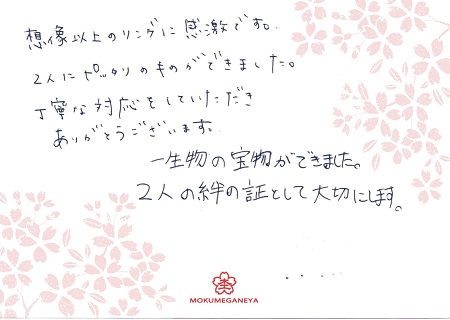 想像以上のリングに感激です。
2人にピッタリのものができました。
丁寧な対応をしていただき
ありがとうございます。
一生物の宝物ができました。
2人の絆の証として大切にします。
MOKUMEGANEYA